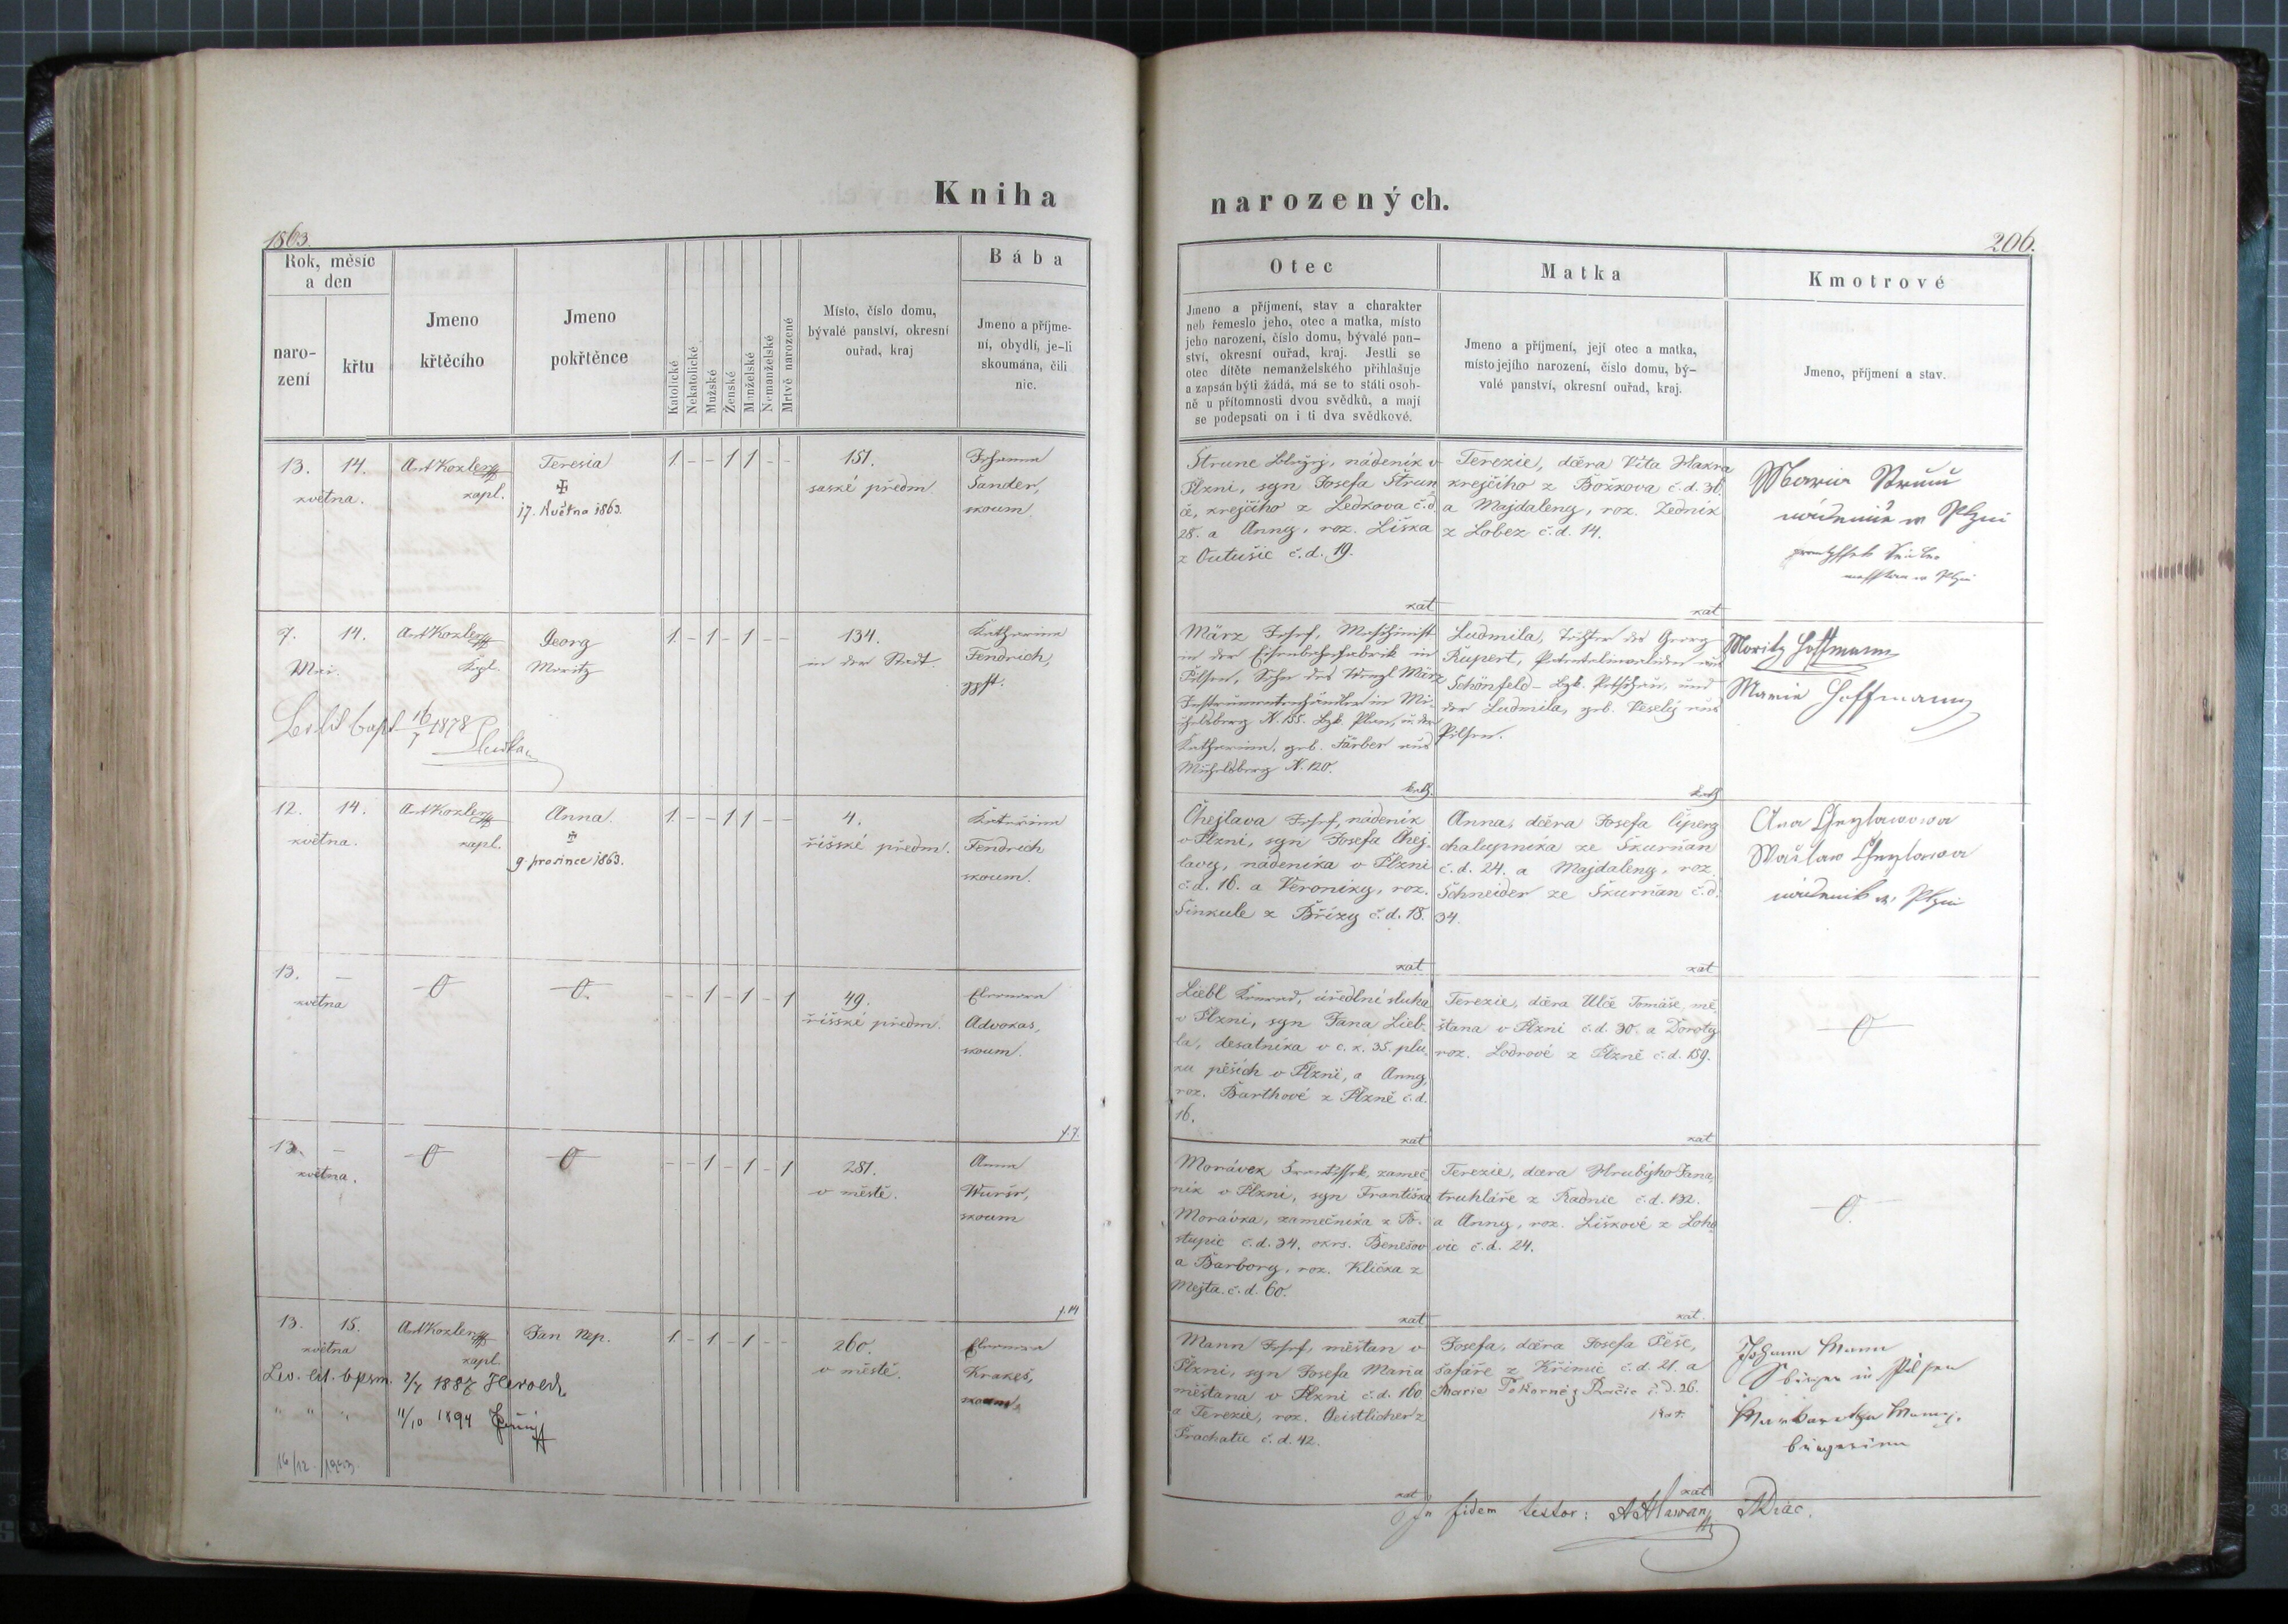 Kniha
narozených.
1863.
206.
Rok, měsíc
a den
naro-
zení
křtu
Jmeno
křtěcího
Jmeno
pokřtěnce
Katolické
Nekatolické
Mužské
Ženské
Manželské
Nemanželské
Mrtvě narozené
Místo, číslo domu,
bývalé panství, okresní
ouřad, kraj
Bába
Jmeno a příjme-
ní, obydlí, je-li
skoumána, čili
nic.
Otec
Jmeno a příjmení, stav a charakter
neb řemeslo jeho, otec a matka, místo
jeho narození, číslo domu, bývalé pan-
ství, okresní ouřad, kraj. Jestli se
otec dítěte nemanželského přihlašuje
a zapsán býti žádá, má se to státi osob-
ně u přítomnosti dvou svědků, a mají
se podepsati on i ti dva svědkové.
Matka
Jmeno a příjmení, její otec a matka,
místo jejího narození, číslo domu, bý-
valé panství, okresní ouřad, kraj.
Kmotrové
Jmeno, příjmení a stav.
13. 14.
května.
Ant Kozler
kapl.
Teresia
17. Května 1863.
1 - - 1 1 - -
151.
saské předm
Johanna
Sander,
skoum.
Štrunc, nádeník v
Plzni, syn Josefa Štrun
ce, krejčího z Ledkova č.d.
28. a Anny, roz. Liška
z Outušic č.d. 19.
kat
Terezie, dcera Víta Hakra
krejčího z Božkova č.d. 36.
a Majdaleny, roz. Zedník
z Lobez č.d. 14.
kat
Maria
w Plzni
7. 14.
Mai.
Ant Kozler
Kapl.
Georg
Moritz
1 - 1 - 1 - -
134.
in der Stadt.
Katharina
Fendrich,
gpft.
16/7 1878
März Josef, Maschinist
in der Eisenbahnfabrik in
Pilsen, Sohn des Wenzl März
in Mi-
chelsberg N. 155. Bzk. Plan, u. der
Katharina, geb. Färber aus
Michelsberg N. 120.
kath.
Ludmila, Tochter des Georg
Rupert, Patentalinvaliden aus
Schönfeld - Bzk. Petschau, und
der Ludmila, geb. Veselý aus
Pilsen.
kath
Moritz Hoffmann
Marie Hoffmann
12. 14.
května.
Ant Kozler
kapl.
Anna.
9. prosince 1863.
1 - - 1 1 - -
4.
říšské předm.
Kateřina
Fendrich
skoum.
Chejlava Josef, nádeník
v Plzni, syn Josefa Chej-
lavy, nádeníka v Plzni
č.d. 16. a Veroniky, roz.
Šinkule z Břízy č.d. 18.
kat
Anna, dcera Josefa Čperg
chalupníka ze Skurňan
č.d. 24. a Majdaleny, roz.
Schneider ze Skurňan č.d.
34.
kat
w Plzni
13. -
května
- - 1 - 1 - 1
49.
říšské předm.
Eleonora
Advokas,
skoum.
Liebl Konrad, úřední sluha
v Plzni, syn Jana Lieb-
la, desatníka v c. k. 35. plu-
ku pěších v Plzni, a Anny,
roz. Barthové z Plzně č.d.
16.
kat
Terezie, dcera Ulče Tomáše, mě-
šťana v Plzni č.d. 30. a Doroty
roz. Lodrové z Plzně č.d. 159.
kat
13. -
května.
- - 1 - 1 - 1
281.
v městě.
Anna
skoum
Morávek František, zameč-
ník v Plzni, syn Františka
Morávka, zamečníka z Po-
stupic č.d. 34. okrs. Benešov
a Barbory, roz. Klička z
Mezta. č.d. 60.
kat
Terezie, dcera Hrubýho Jana,
truhláře z Radnic č.d. 132.
a Anny, roz. Liškové z Loho
vic č.d. 24.
kat.
13. 15.
května
Ant Kozler
kapl.
Jan Nep.
1 - 1 - 1 - -
260.
v městě.
Eleonora
Krakeš,
skoum.
1887 Herold
" " " 11/10 1894
Mann Josef, měšťan v
Plzni, syn Josefa Manna
měšťana v Plzni č.d. 160
a Terezie, roz. Geistlicher z
Prachatic č.d. 42.
kat
Josefa, dcera Josefa Pěše,
šafáře z Křimic č.d. 21. a
Marie Pokorné z Račic č.d. 26.
kat.
kat
Johann Mann
Bürger in Pilsen
Mann
Bürgerinn
In fidem testor: